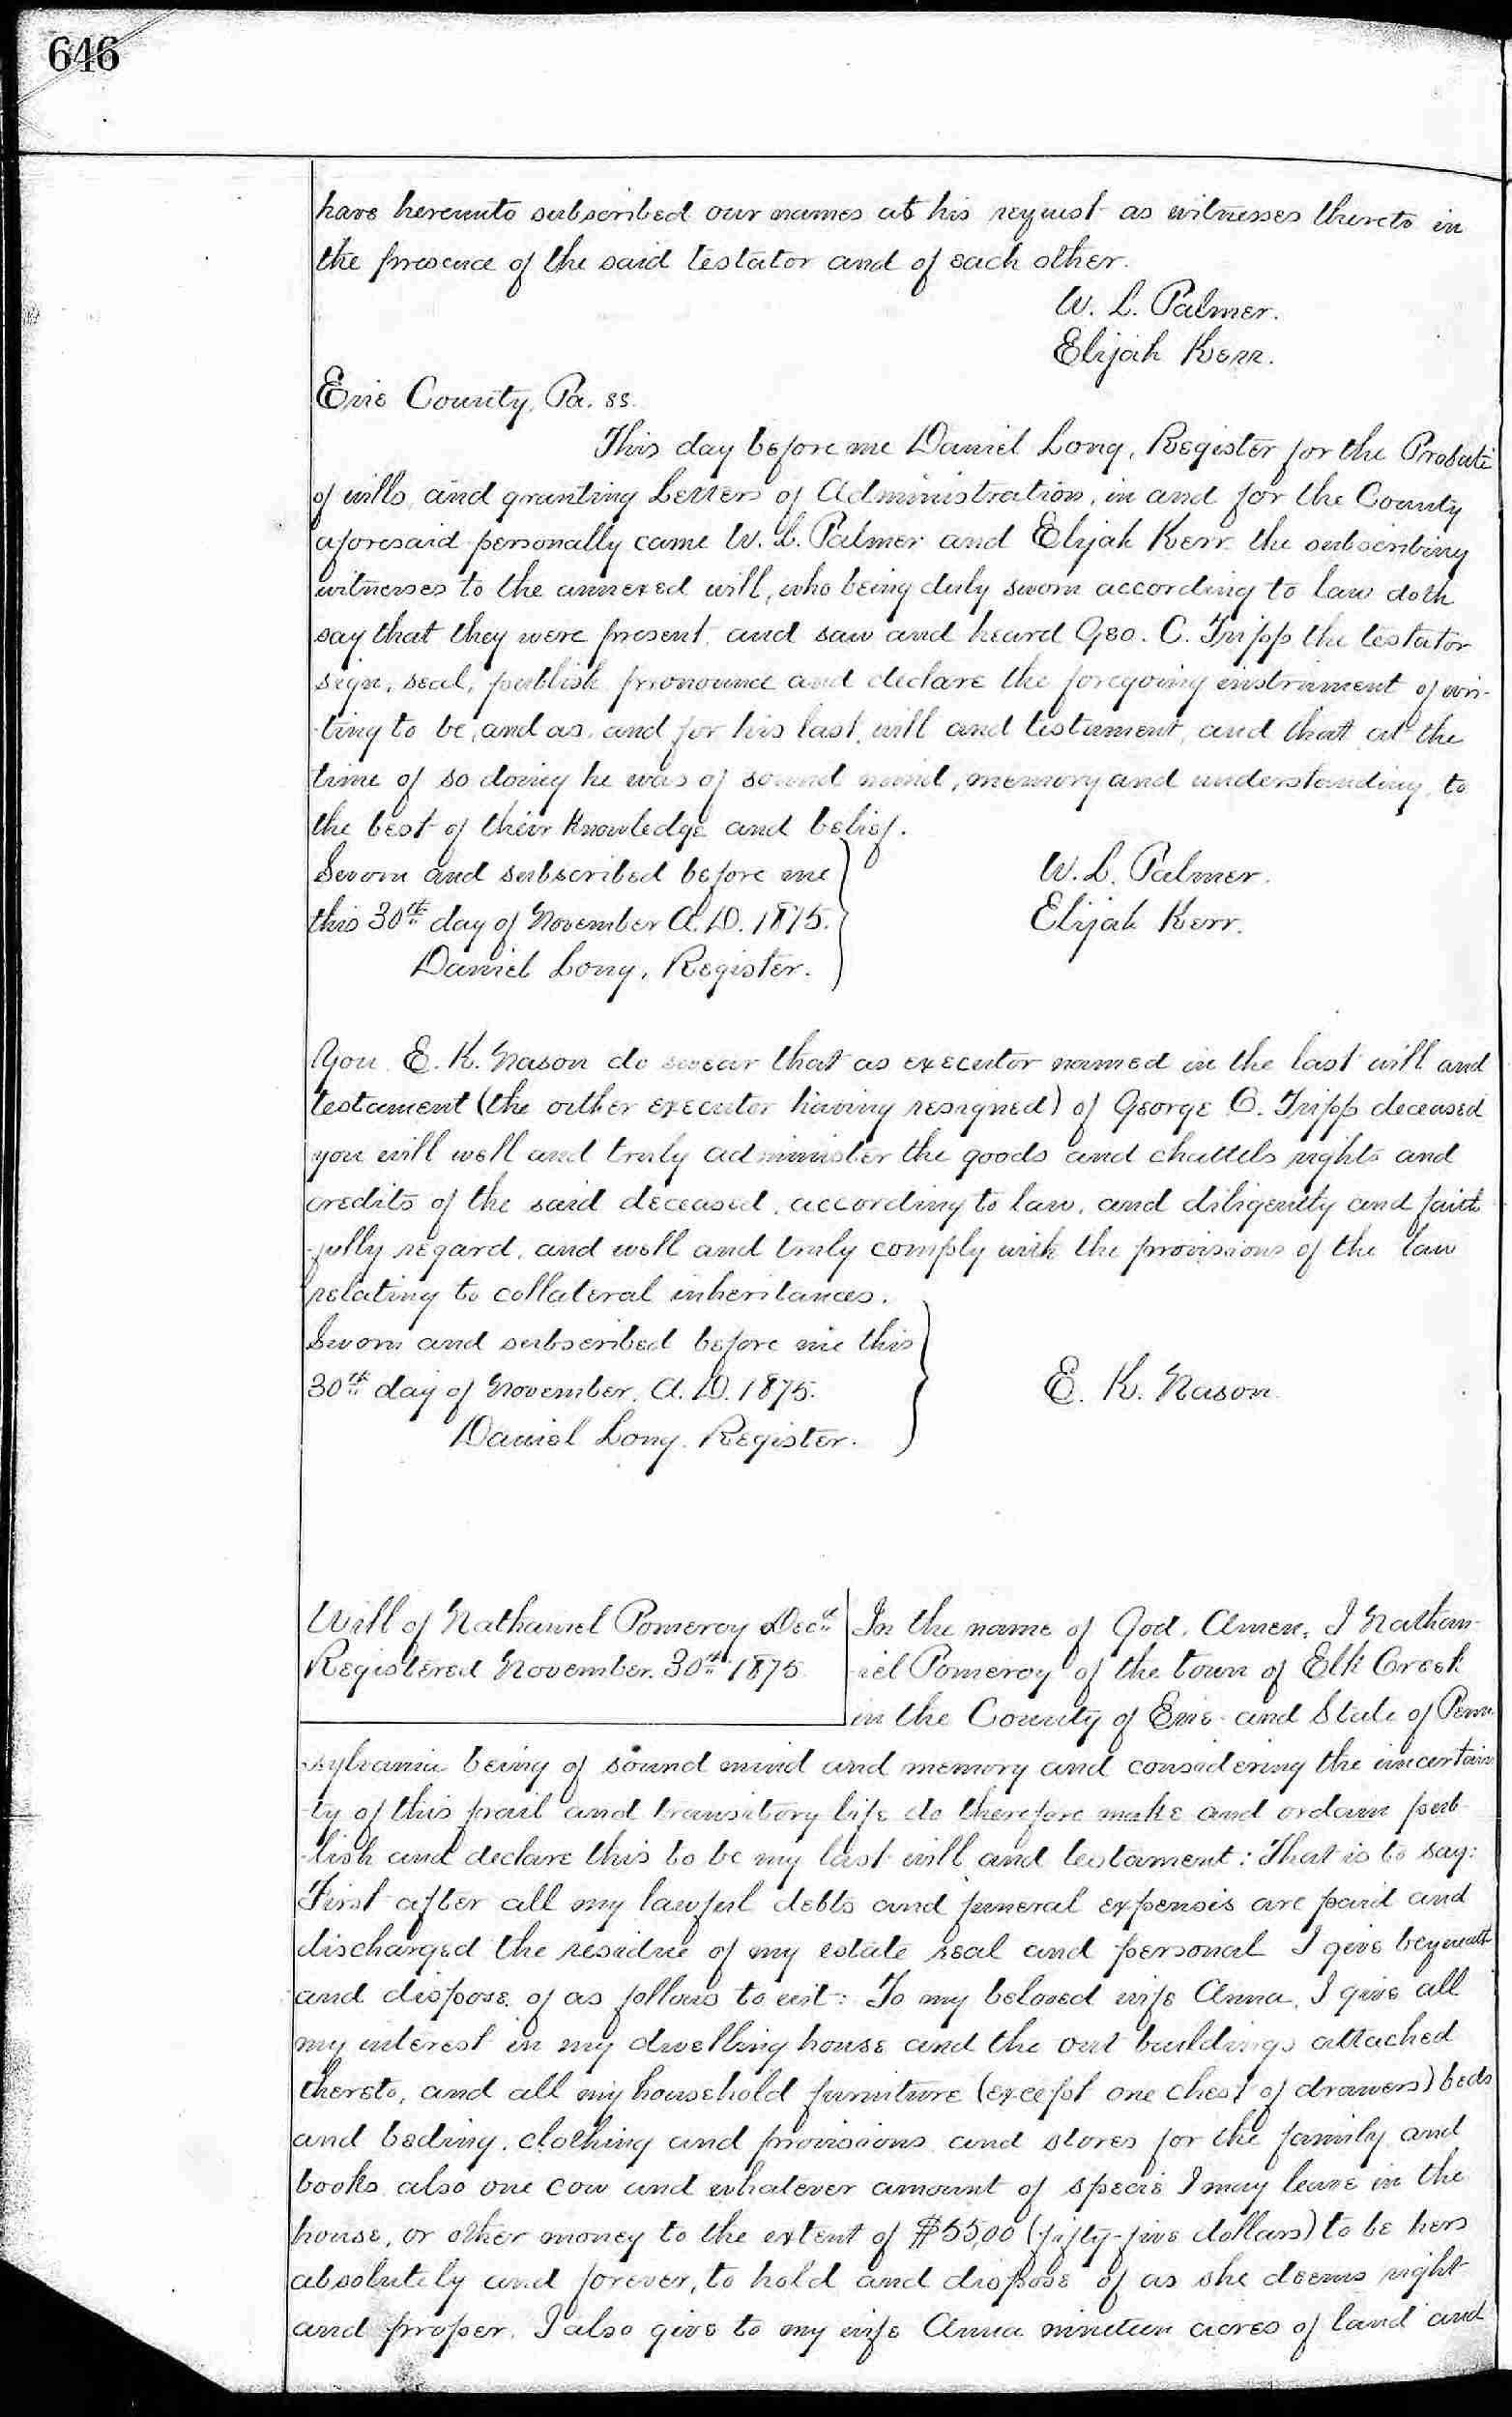 646
have hereunto subscribed our names at his request as witnesses thereto in
the presence of the said testator and of each other.
W. L. Palmer.
Elijah Kerr.
Erie County, Pa. ss.
This day before me Daniel Long, Register for the Probate
of wills, and granting Letters of Administration, in and for the County
aforesaid personally came W. L. Palmer and Elijah Kerr the subscribing
witnesses to the annexed will, who being duly sworn according to law doth
say that they were present, and saw and heard Geo. C. Tripp the testator
sign, seal, publish pronounce and declare the foregoing instrument of wri-
-ting to be, and as, and for his last will and testament, and that at the
time of so doing he was of sound mind, memory and understanding, to
the best of their knowledge and belief.
Sworn and subscribed before me
this 30th day of November A.D. 1875.
Daniel Long, Register.
W. L. Palmer.
Elijah Kerr.
You E. K. Nason do swear that as executor named in the last will and
testament (the other executor having resigned) of George C. Tripp deceased
you will well and truly administer the goods and chattels rights and
credits of the said deceased, according to law, and diligently and faith
-fully regard, and well and truly comply with the provisions of the law
relating to collateral inheritances.
Sworn and subscribed before me this
30th day of November, A.D. 1875.
Daniel Long, Register.
E. K. Nason.
Will of Nathaniel Pomeroy Decd
Registered November. 30th 1875
In the name of God, Amen, I Nathan-
-iel Pomeroy of the town of Elk Creek
in the County of Erie and State of Penn
-sylvania being of sound mind and memory and considering the uncertain
-ty of this frail and transitory life do therefore make and ordain pub-
-lish and declare this to be my last will and testament: That is to say:
First after all my lawful debts and funeral expensis are paid and
discharged the residue of my estate real and personal I give bequeath
and dispose of as follows to wit: To my beloved wife Anna, I give all
my interest in my dwelling house and the out buildings attached
thereto, and all my household furniture (except one chest of drawers) beds
and beding, clothing and provisions and stores for the family and
books also one cow and whatever amount of specie I may leave in the
house, or other money to the extent of $55,00 (fifty-five dollars) to be hers
absolutely and forever, to hold and dispose of as she deems right
and proper. I also give to my wife Anna nineteen acres of land and